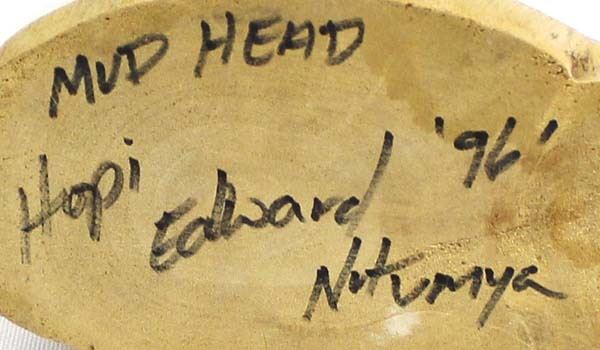 MUD HEAD
'96'
Hopi Edward
Nutumya